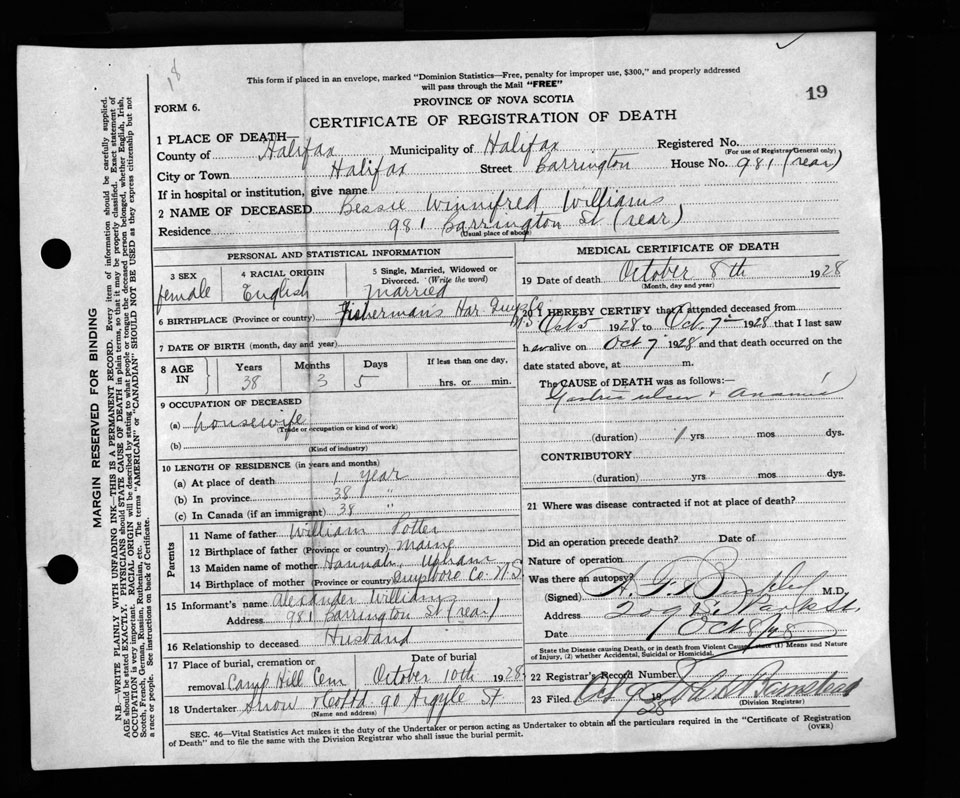 18
This form if placed in an envelope, marked "Dominion Statistics—Free, penalty for improper use, $300," and properly addressed
will pass through the Mail "FREE"
19
FORM 6.
PROVINCE OF NOVA SCOTIA
CERTIFICATE OF REGISTRATION OF DEATH
1 PLACE OF DEATH—
County of Halifax Municipality of Halifax Registered No.
(For use of Registrar General only)
City or Town Halifax Street Barrington House No. 981 (rear)
If in hospital or institution, give name
2 NAME OF DECEASED Bessie Winnifred Williams
Residence 981 Barrington St (rear)
(Usual place of abode)
PERSONAL AND STATISTICAL INFORMATION
3 SEX 4 RACIAL ORIGIN 5 Single, Married, Widowed or Divorced. (Write the word)
female English married
6 BIRTHPLACE (Province or country) Fishermans Har Guysbo NS
7 DATE OF BIRTH (month, day and year)
8 AGE IN Years Months Days If less than one day,
38 3 5 hrs. or min.
9 OCCUPATION OF DECEASED
(a) housewife
(Trade or occupation or kind of work)
(b)
(Kind of industry)
10 LENGTH OF RESIDENCE (in years and months)
(a) At place of death 1 year
(b) In province 38 "
(c) In Canada (if an immigrant) 38 "
Parents
11 Name of father William Potter
12 Birthplace of father (Province or country) Maine
13 Maiden name of mother Hannah Upham
14 Birthplace of mother (Province or country) Guysboro Co N.S.
15 Informant's name Alexander Williams
Address 981 Barrington St (rear)
16 Relationship to deceased Husband
17 Place of burial, cremation or removal Camp Hill Cem Date of burial October 10th 1928
18 Undertaker Snow & Co Ltd 90 Argyle St
(Name and address)
MEDICAL CERTIFICATE OF DEATH
19 Date of death October 8th 1928
(Month, day and year)
20 I HEREBY CERTIFY that I attended deceased from
Oct 5 1928 to Oct. 7 1928 that I last saw
her alive on Oct 7 1928 and that death occurred on the
date stated above, at m.
The CAUSE of DEATH was as follows:—
Gastric ulcer + Anaemia
(duration) 1 yrs mos dys.
CONTRIBUTORY
(duration) yrs. mos. dys.
21 Where was disease contracted if not at place of death?
Did an operation precede death? Date of
Nature of operation
Was there an autopsy?
(Signed) M.D.
Address Park St.
Date Oct 8/28
State the Disease causing Death, or in death from Violent Causes, state (1) Means and Nature
of Injury, (2) whether Accidental, Suicidal or Homicidal.
22 Registrar's Record Number
23 Filed Oct 9 1928
(Division Registrar)
SEC. 46—Vital Statistics Act makes it the duty of the Undertaker or person acting as Undertaker to obtain all the particulars required in the "Certificate of Registration
of Death" and to file the same with the Division Registrar who shall issue the burial permit.
(OVER)
MARGIN RESERVED FOR BINDING
N.B.—WRITE PLAINLY WITH UNFADING INK—THIS IS A PERMANENT RECORD. Every item of information should be carefully supplied.
AGE should be stated EXACTLY. PHYSICIANS should STATE CAUSE OF DEATH in plain terms, so that it may be properly classified. Exact statement of
OCCUPATION is very important. RACIAL ORIGIN will be described by stating to what people or tongue the deceased person belonged, whether English, Irish,
Scotch, French, German, Russian, Ruthenian, etc. The terms "AMERICAN" or "CANADIAN" SHOULD NOT BE USED as they express citizenship but not
a race or people. See instructions on back of Certificate.